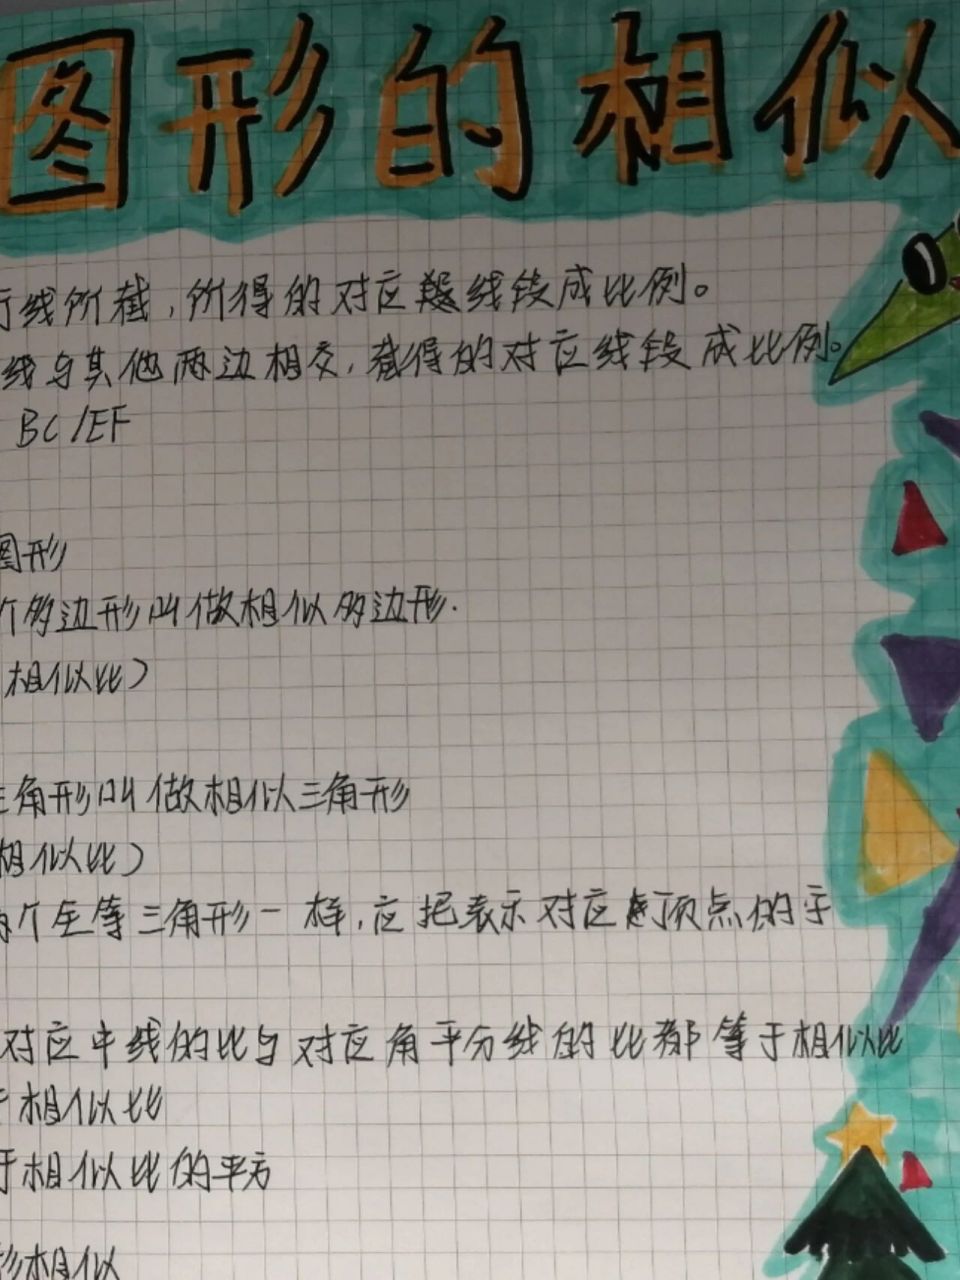 图形的相似
行线所截,所得的对应线段成比例。
线与其他两边相交,截得的对应线段成比例。
BC/EF
图形
个多边形叫做相似多边形.
相似比)
三角形叫做相似三角形
相似比)
两个全等三角形一样,应把表示对应顶点的字
对应中线的比与对应角平分线的比都等于相似比
于相似比
于相似比的平方
形相似